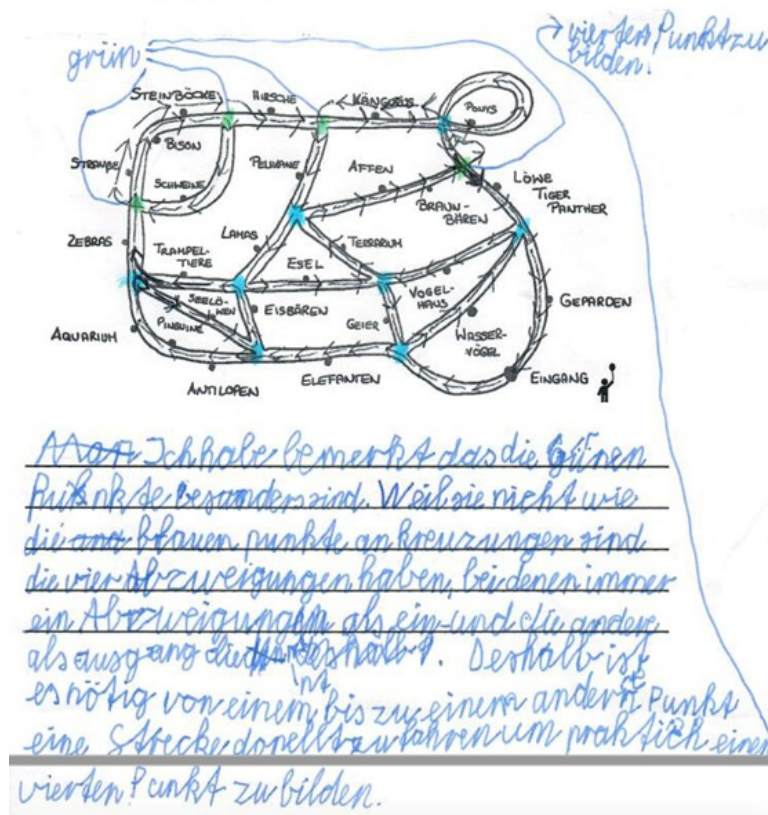 → vierten Punkt zu
bilden.
grün
STEINBÖCKE
HIRSCHE
KÄNGURUS
PONYS
BISON
STRAUßE
SCHWEINE
PELIKANE
AFFEN
BRAUN-
BÄREN
LÖWE
TIGER
PANTHER
ZEBRAS
TRAMPEL-
TIERE
LAMAS
ESEL
TERRARIUM
SEELÖ-
WEN
PINGUINE
EISBÄREN
GEIER
VOGEL-
HAUS
WASSER-
VÖGEL
GEPARDEN
AQUARIUM
ANTILOPEN
ELEFANTEN
EINGANG
Ich habe bemerkt das die günen
Punkte besonders sind. Weil sie nicht wie
die blauen punkte an kreuzungen sind
die vier Abzweigungen haben, bei denen immer
ein Abzweigung als ein- und die andere
als ausgang. Deshalb ist
es nötig von einem bis zu einem andern Punkt
eine Strecke donellt zu fahren um praktich einen
vierten Punkt zu bilden.